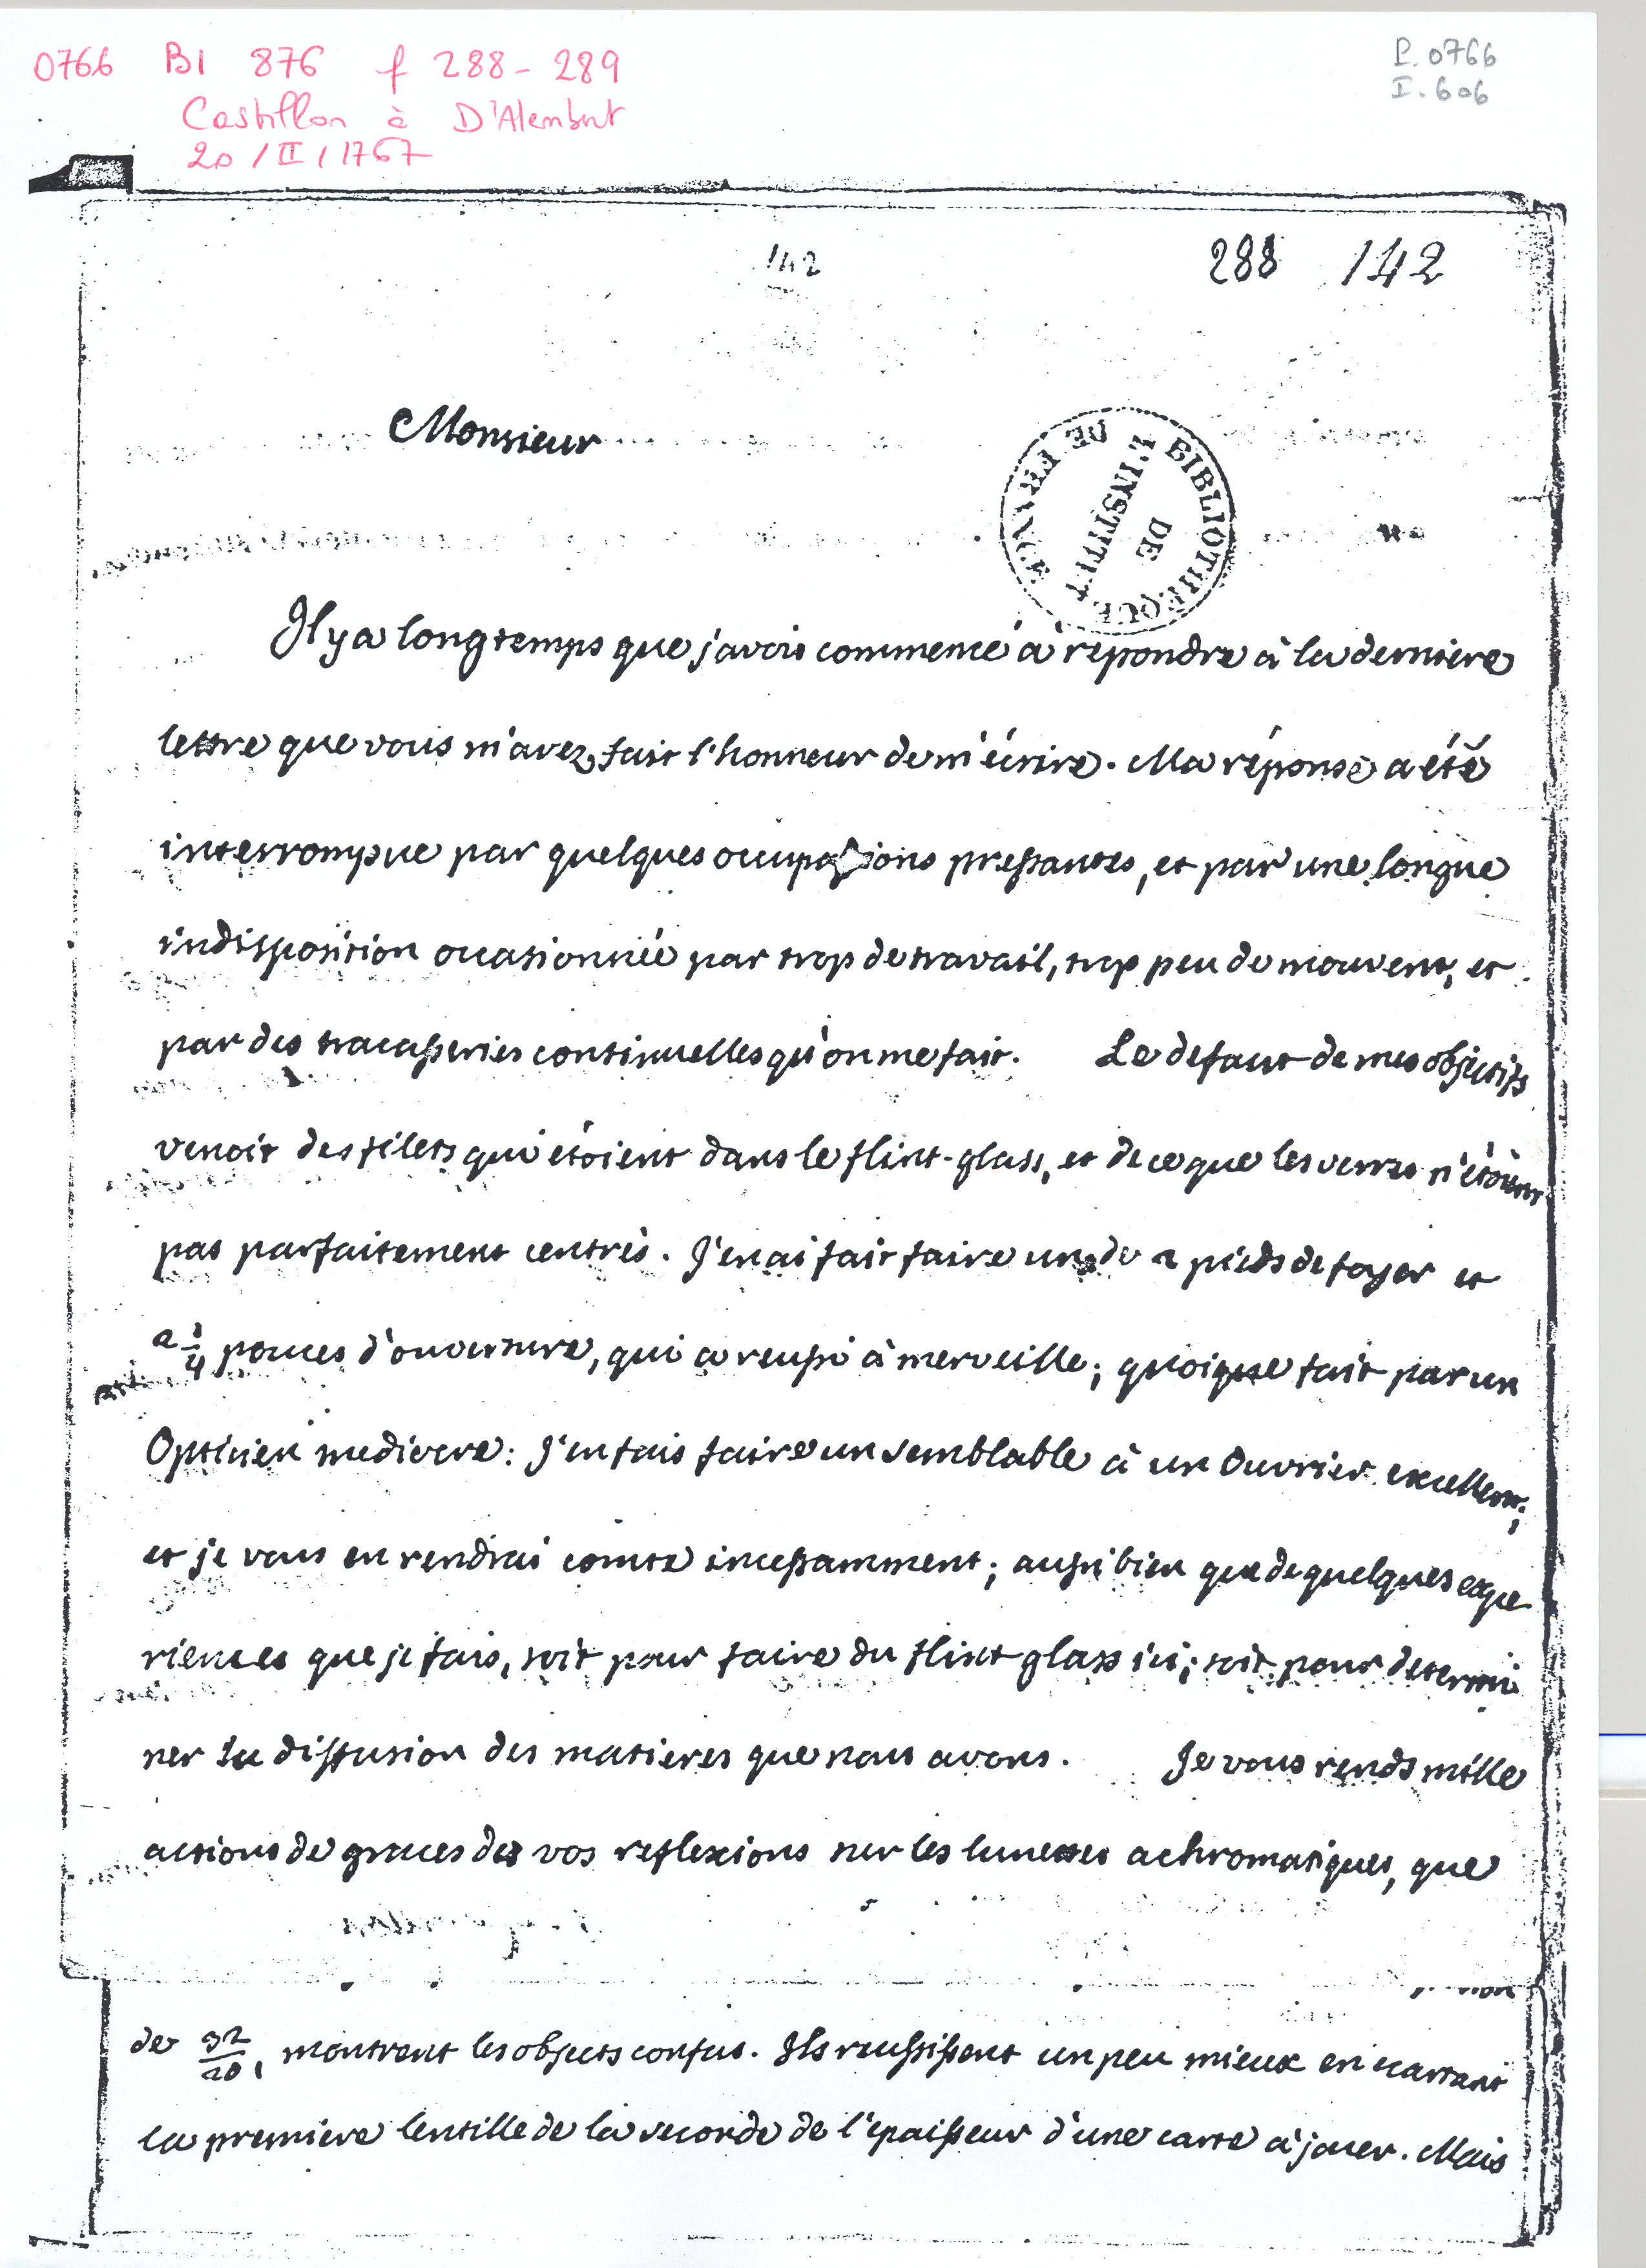 0766 BI 876 f 288-289
Castillon à D'Alembert
20/II/1767
P. 0766
I. 606
142
288 142
Monsieur
BIBLIOTHÈQUE DE L'INSTITUT DE FRANCE
Il y a longtemps que j'avois commencé à repondre à la derniere
lettre que vous m'avez fait l'honneur de m'écrire. Ma réponse a été
interrompue par quelques occupations pressantes, et par une longue
indisposition occasionnée par trop de travail, trop peu de mouvent, et
par des tracasseries continuelles qu'on me fait. Le defaut de mes objectifs
venoit des filets qui étoient dans le flint-glass, et de ce que les verres n'étoient
pas parfaitement centrés. J'en ai fait faire un de 2 pieds de foyer et
2 3/4 pouces d'ouverture, qui a reussi à merveille; quoique fait par un
Opticien mediocre: J'en fais faire un semblable à un Ouvrier excellent;
et je vous en rendrai comte incessamment; aussi bien que de quelques expe
riences que je fais, soit pour faire du flint glass ici; soit pour determi
ner la diffusion des matieres que nous avons. Je vous rends mille
actions de graces de vos reflexions sur les lunettes achromatiques, que
non
de 32/20, montrent les objects confus. Ils reussissent un peu mieux en ecartant
la premiere lentille de la seconde de l'epaisseur d'une carte à jouer. Mais